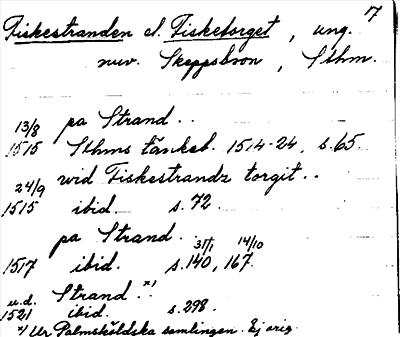 7
Fiskestranden el. Fisketorget, ung.
nuv. Skeppsbron, Sthm.
13/8 pa Strand..
1515 Sthms tänkeb. 1514-24, s.65.
24/9 wid Fiskestrandz torgit..
1515 ibid. s.72.
pa Strand. 31/1 14/10
1517 ibid. s.140, 167.
u.d. Strand.. x)
1521 ibid. s.298.
x) Ur Palmsköldska samlingen. Ej orig.